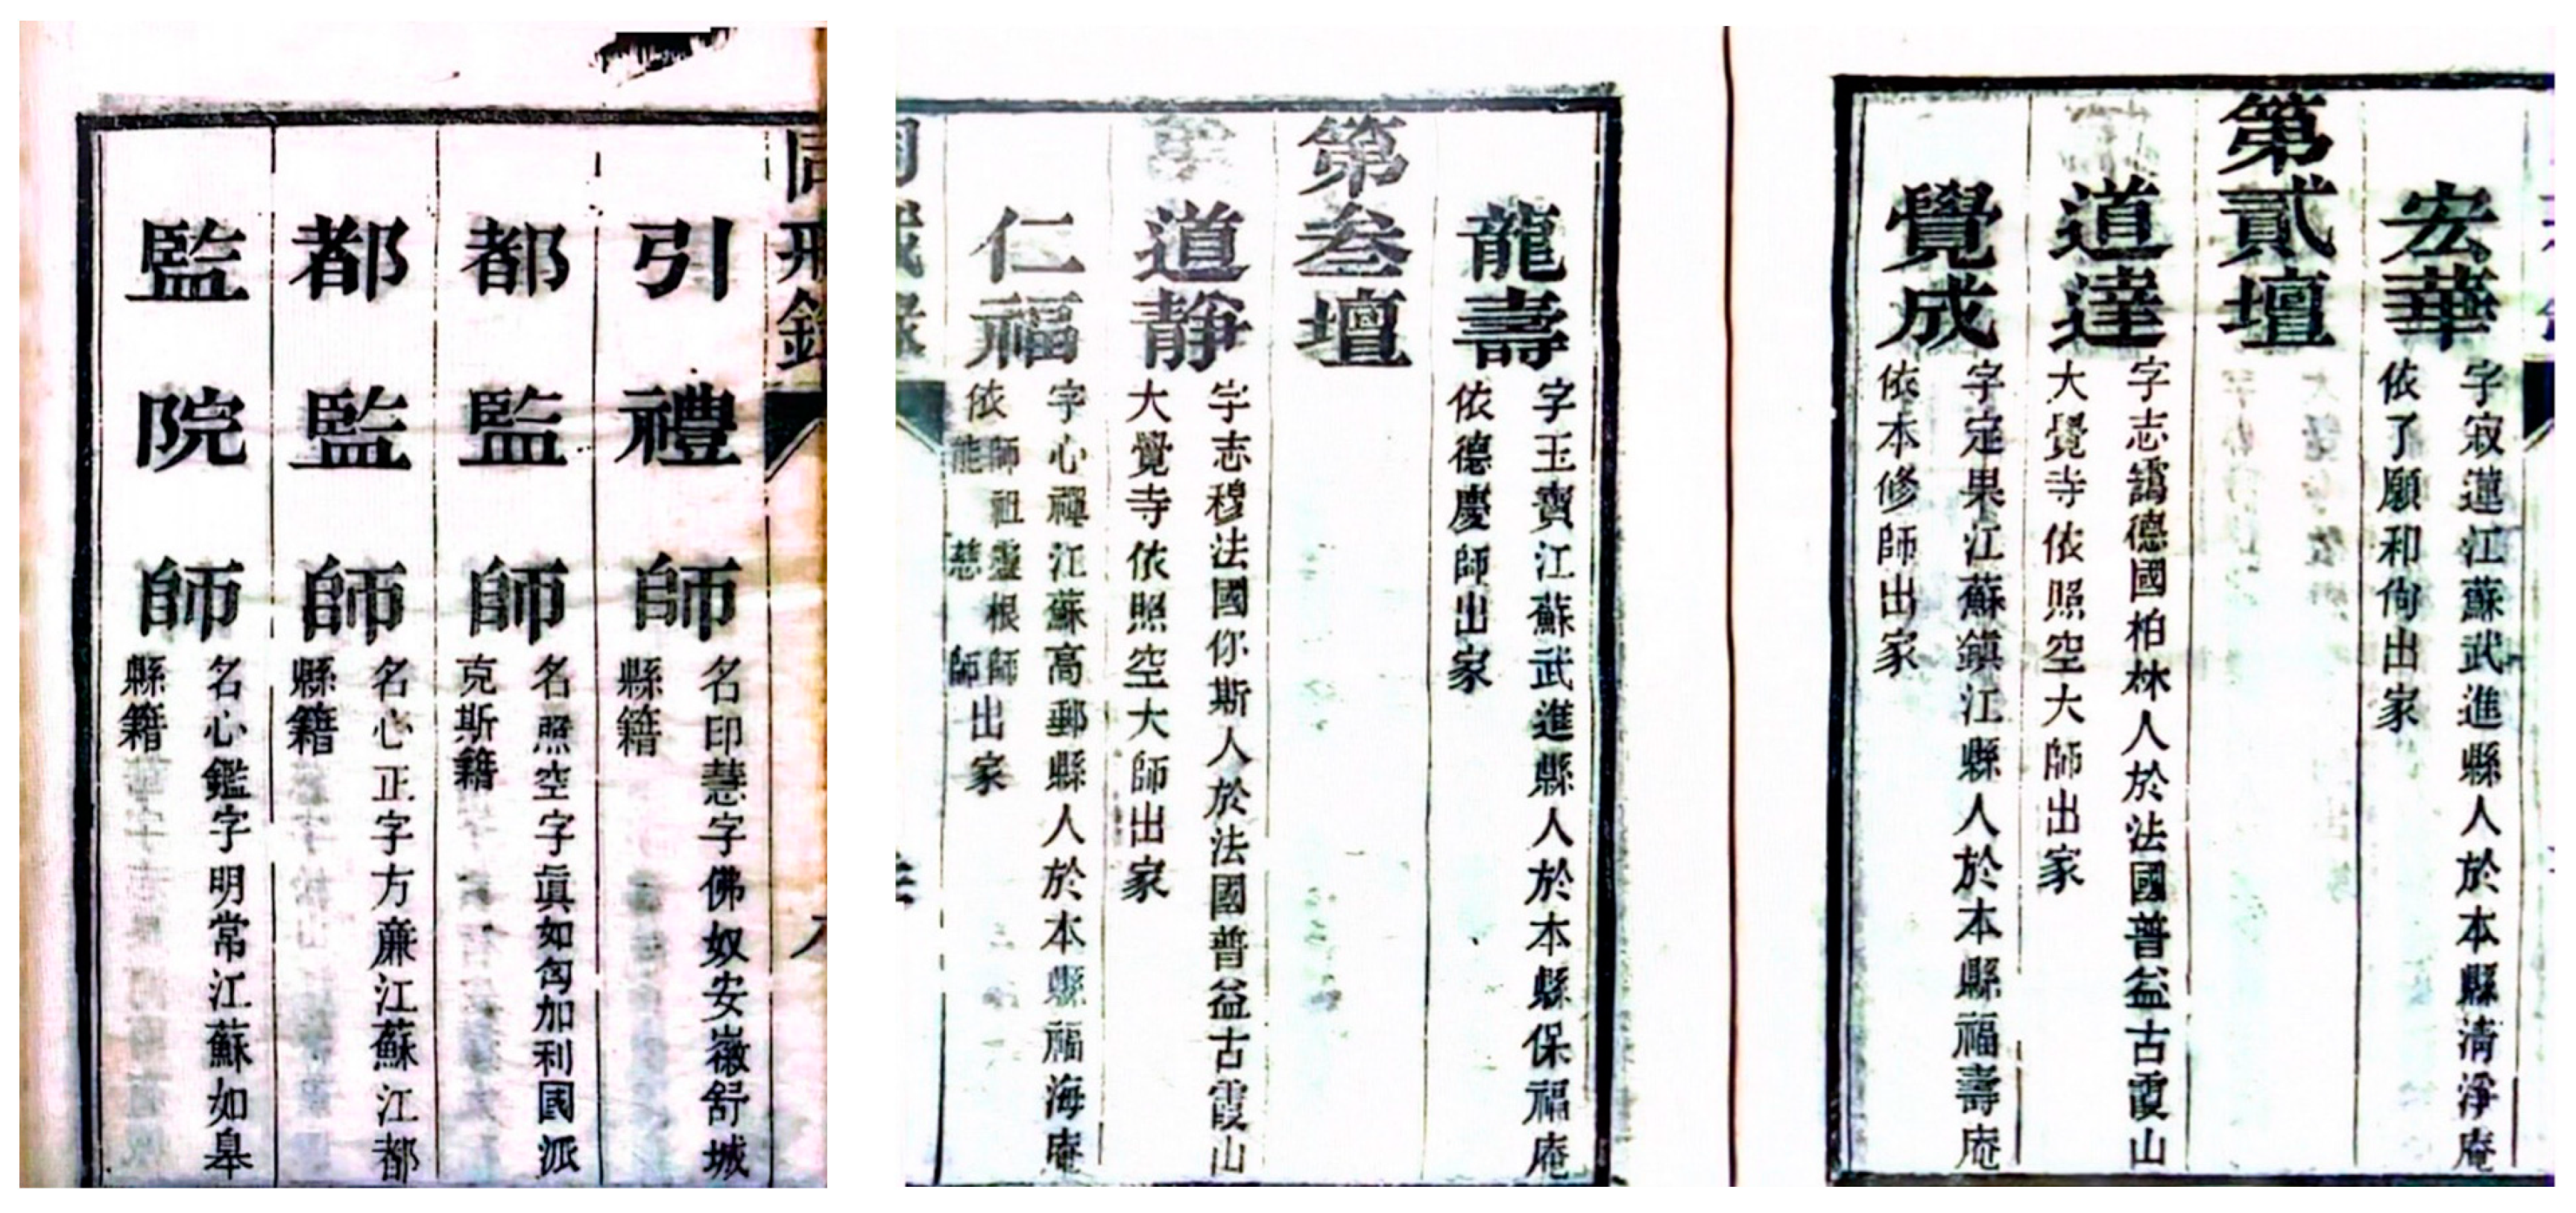 引禮師
名印慧字佛奴安徽舒城
縣籍
都監師
名照空字眞如匈加利國派
克斯籍
都監師
名心正字方廉江蘇江都
縣籍
監院師
名心鑑字明常江蘇如皋
縣籍
宏華
字寂蓮江蘇武進縣人於本縣清淨庵
依了願和尙出家
第貳壇
道達
字志靄德國柏林人於法國普益古霞山
大覺寺依照空大師出家
覺成
字定果江蘇鎭江縣人於本縣福壽庵
依本修師出家
龍壽
字玉寶江蘇武進縣人於本縣保福庵
依德慶師出家
第叁壇
道靜
字志穆法國你斯人於法國普益古霞山
大覺寺依照空大師出家
仁福
字心禪江蘇高郵縣人於本縣福海庵
依師祖靈根師
能慈師出家